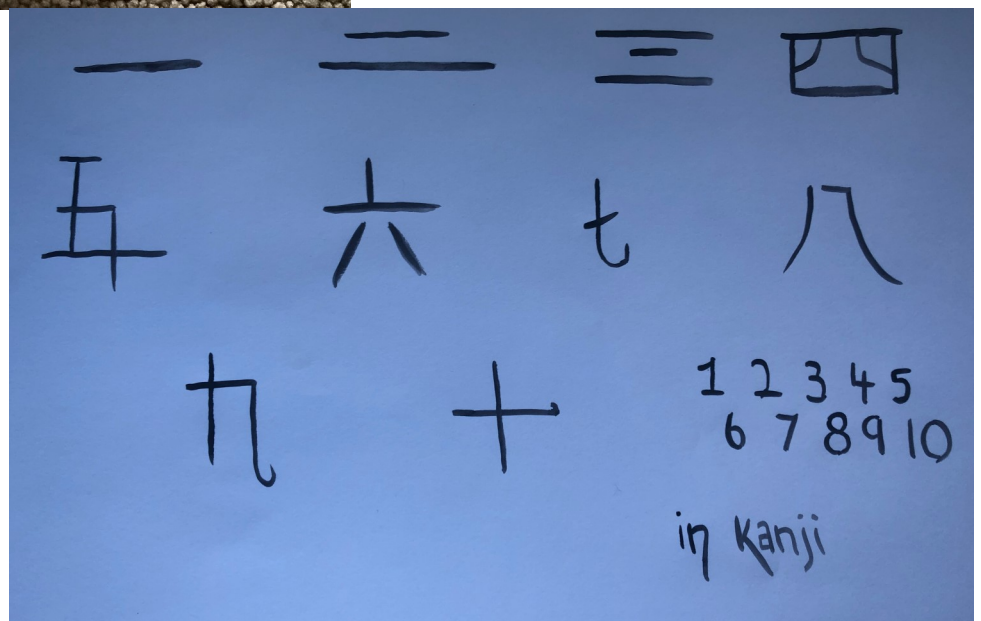 一 二 三 四
五 六 七 八
九 十
1 2 3 4 5
6 7 8 9 10
in Kanji